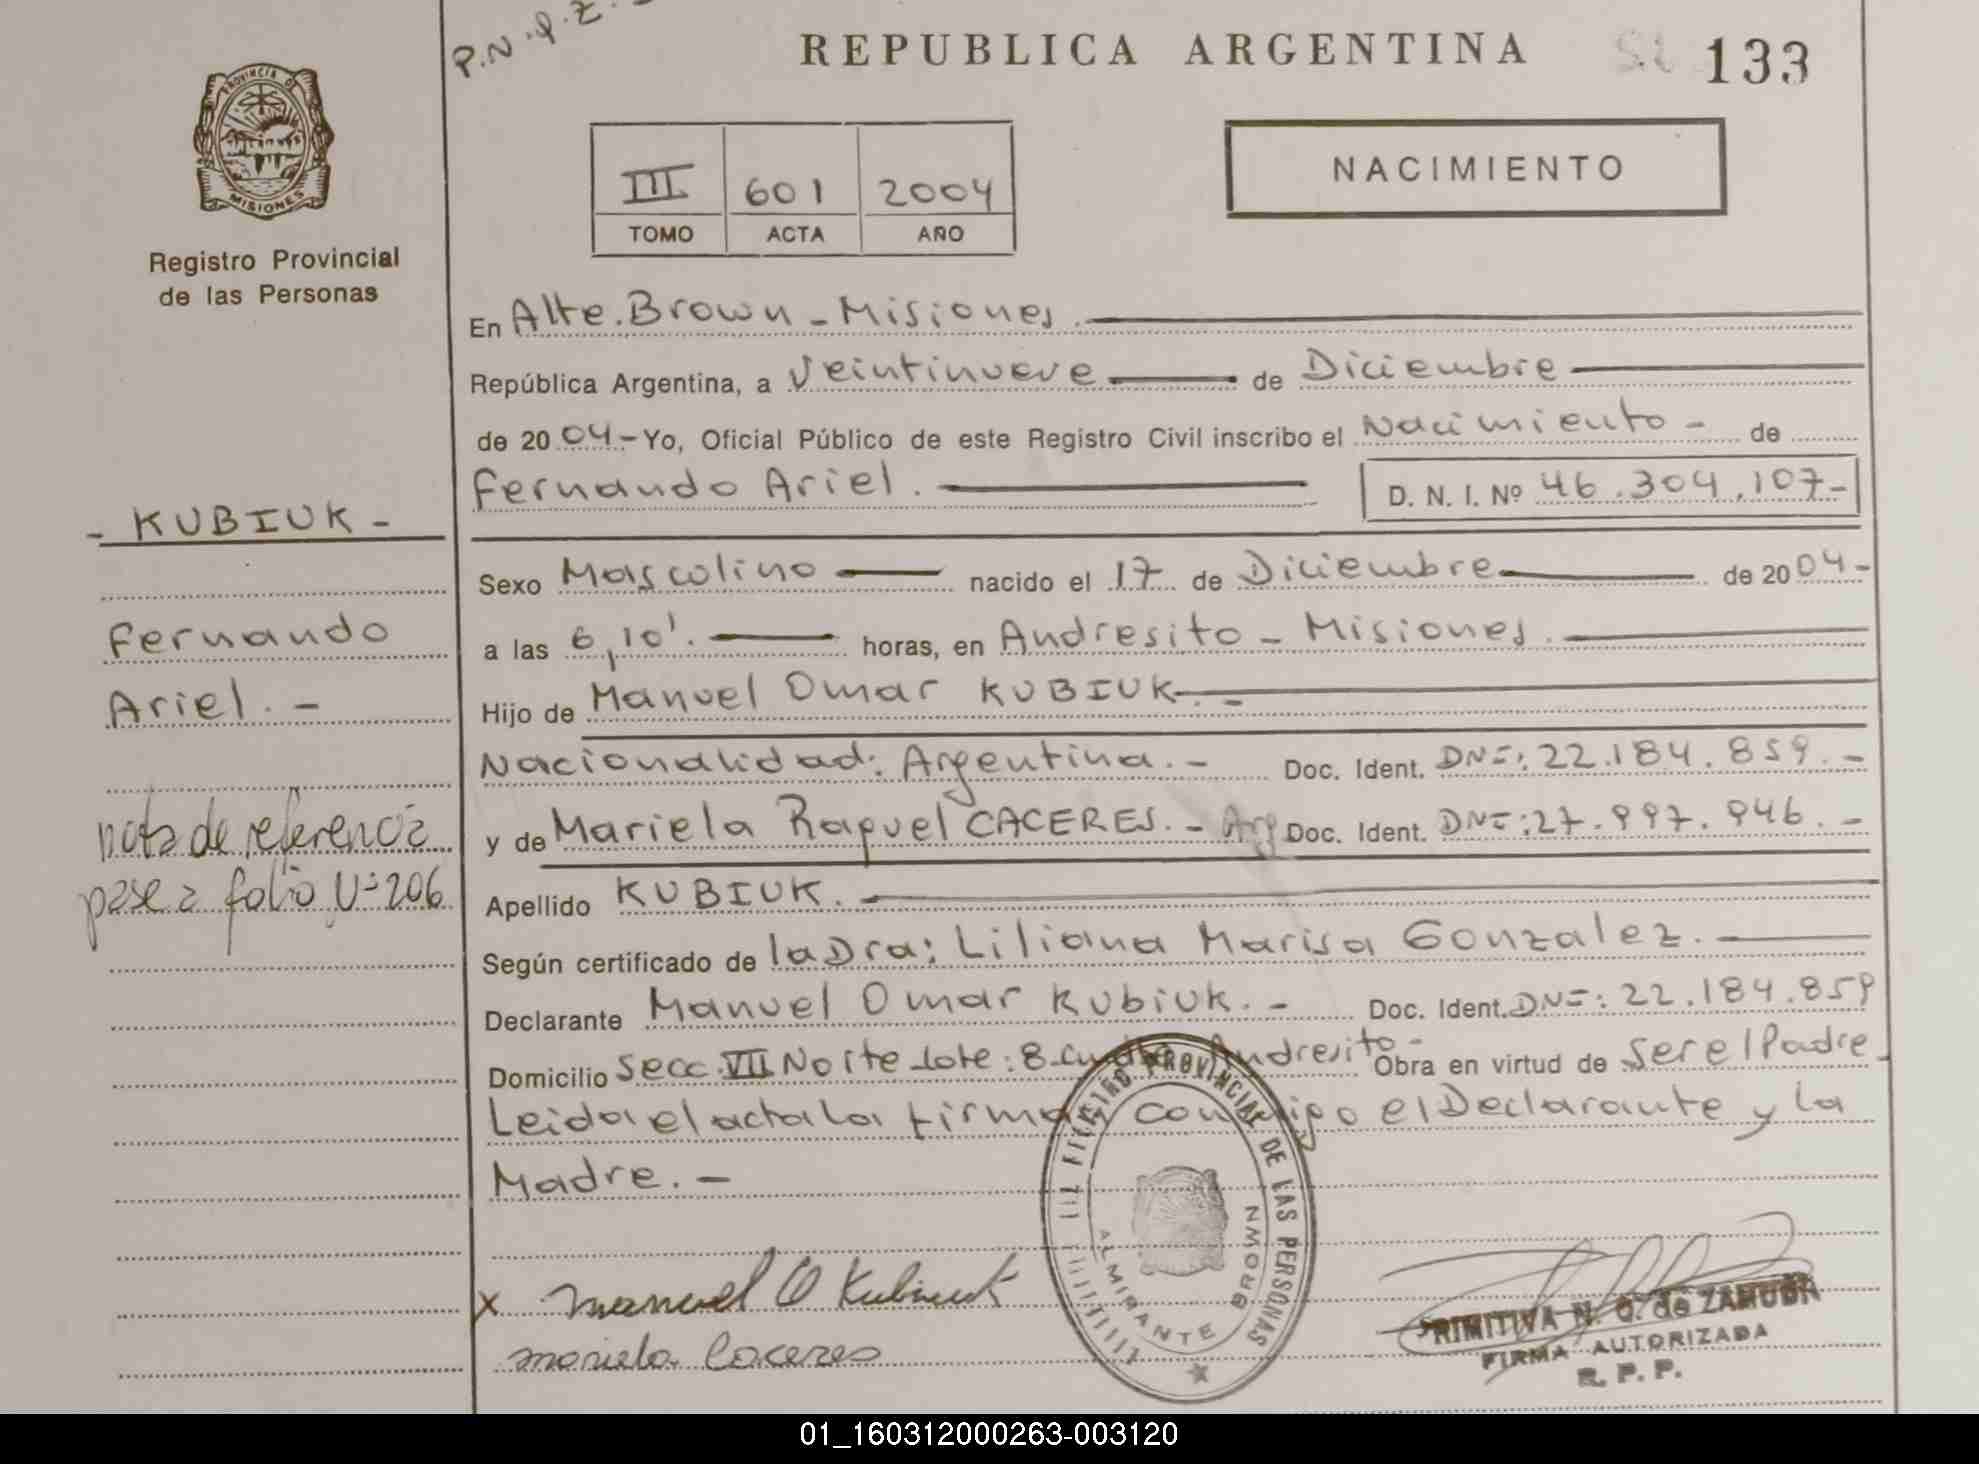 P.N.
REPUBLICA ARGENTINA
133
PROVINCIA DE
MISIONES
Registro Provincial
de las Personas
NACIMIENTO
III 601 2004
TOMO ACTA AÑO
En Alte. Brown - Misiones.
República Argentina, a Veintinueve de Diciembre
de 20 04 - Yo, Oficial Público de este Registro Civil inscribo el Nacimiento - de
Fernando Ariel. D. N. I. Nº 46.304.107-
- KUBIUK -
Fernando
Ariel. -
nota de referencia
pase a folio Nº 206
Sexo Masculino nacido el 17 de Diciembre de 20 04-
a las 6,10'. horas, en Andresito - Misiones.
Hijo de Manuel Omar KUBIUK. -
Nacionalidad: Argentina. - Doc. Ident. DNI: 22.184.859. -
y de Mariela Raquel CACERES. - Arg Doc. Ident. DNI: 27.997.946. -
Apellido KUBIUK.
Según certificado de la Dra: Liliana Marisa Gonzalez.
Declarante Manuel Omar Kubiuk. - Doc. Ident. DNI: 22.184.859
Domicilio Secc. VII Norte Lote: 8 Andresito - Obra en virtud de Ser el Padre
Leida el acta la firma conmigo el Declarante y la
Madre. -
REGISTRO PROVINCIAL DE LAS PERSONAS
ALMIRANTE BROWN
x Manuel O Kubiuk
Mariela Caceres
PRIMITIVA N. G. de ZAMUDIO
FIRMA AUTORIZADA
R. P. P.
01_160312000263-003120